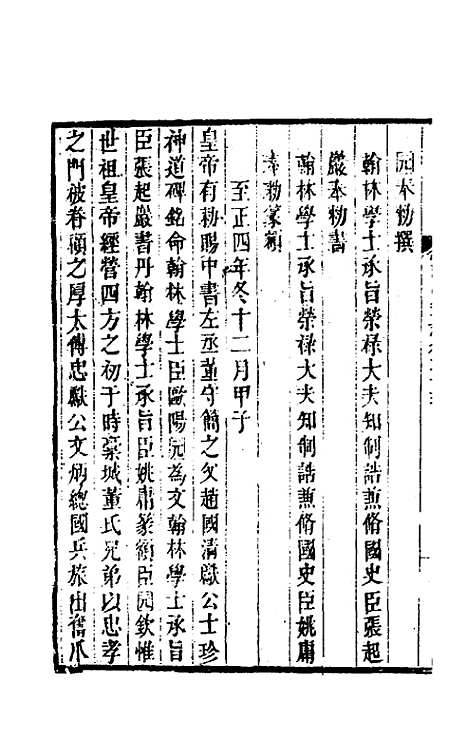 园奉勑撰
翰林學士承旨榮祿大夫知制誥兼脩國史臣張起
巖奉勑書
翰林學士承旨榮祿大夫知制誥兼脩國史臣姚庸
奉勑篆額
至正四年冬十二月甲子
皇帝有勑賜中書左丞董守簡之父趙國清獻公士珍
神道碑銘命翰林學士臣歐陽园為文翰林學士承旨
臣張起巖書丹翰林學士承旨臣姚庸篆額臣园欽惟
世祖皇帝經營四方之初于時藁城董氏兄弟以忠孝
之門被眷顧之厚太傅忠獻公文炳總國兵旅出奮爪